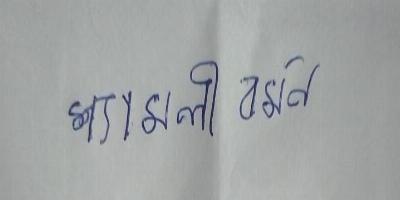 শ্যামলী বর্মন